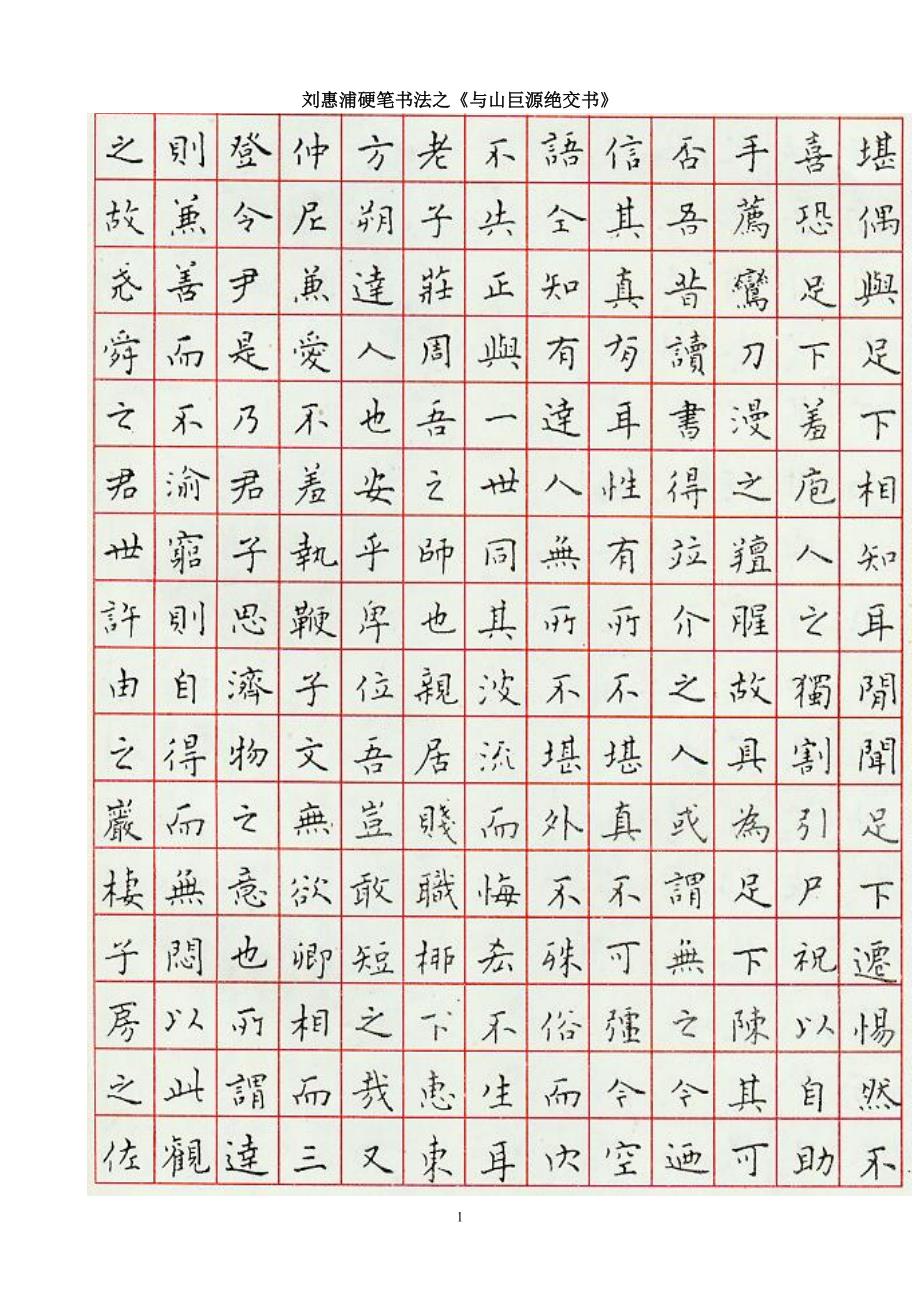 刘惠浦硬笔书法之《与山巨源绝交书》
堪偶與足下相知耳閒聞足下遷惕然不
喜恐足下羞庖人之獨割引尸祝以自助
手薦鸞刀漫之羶腥故具為足下陳其可
否吾昔讀書得竝介之人或謂無之今迺
信其真有耳性有所不堪真不可彊今空
語仝知有達人無所不堪外不殊俗而内
不失正與一世同其波流而悔吝不生耳
老子莊周吾之師也親居賤職栁下惠東
方朔達人也安乎卑位吾豈敢短之哉又
仲尼兼愛不羞執鞭子文無欲卿相而三
登令尹是乃君子思濟物之意也所謂達
則兼善而不渝窮則自得而無悶以此觀
之故堯舜之君世許由之巖棲子房之佐
1